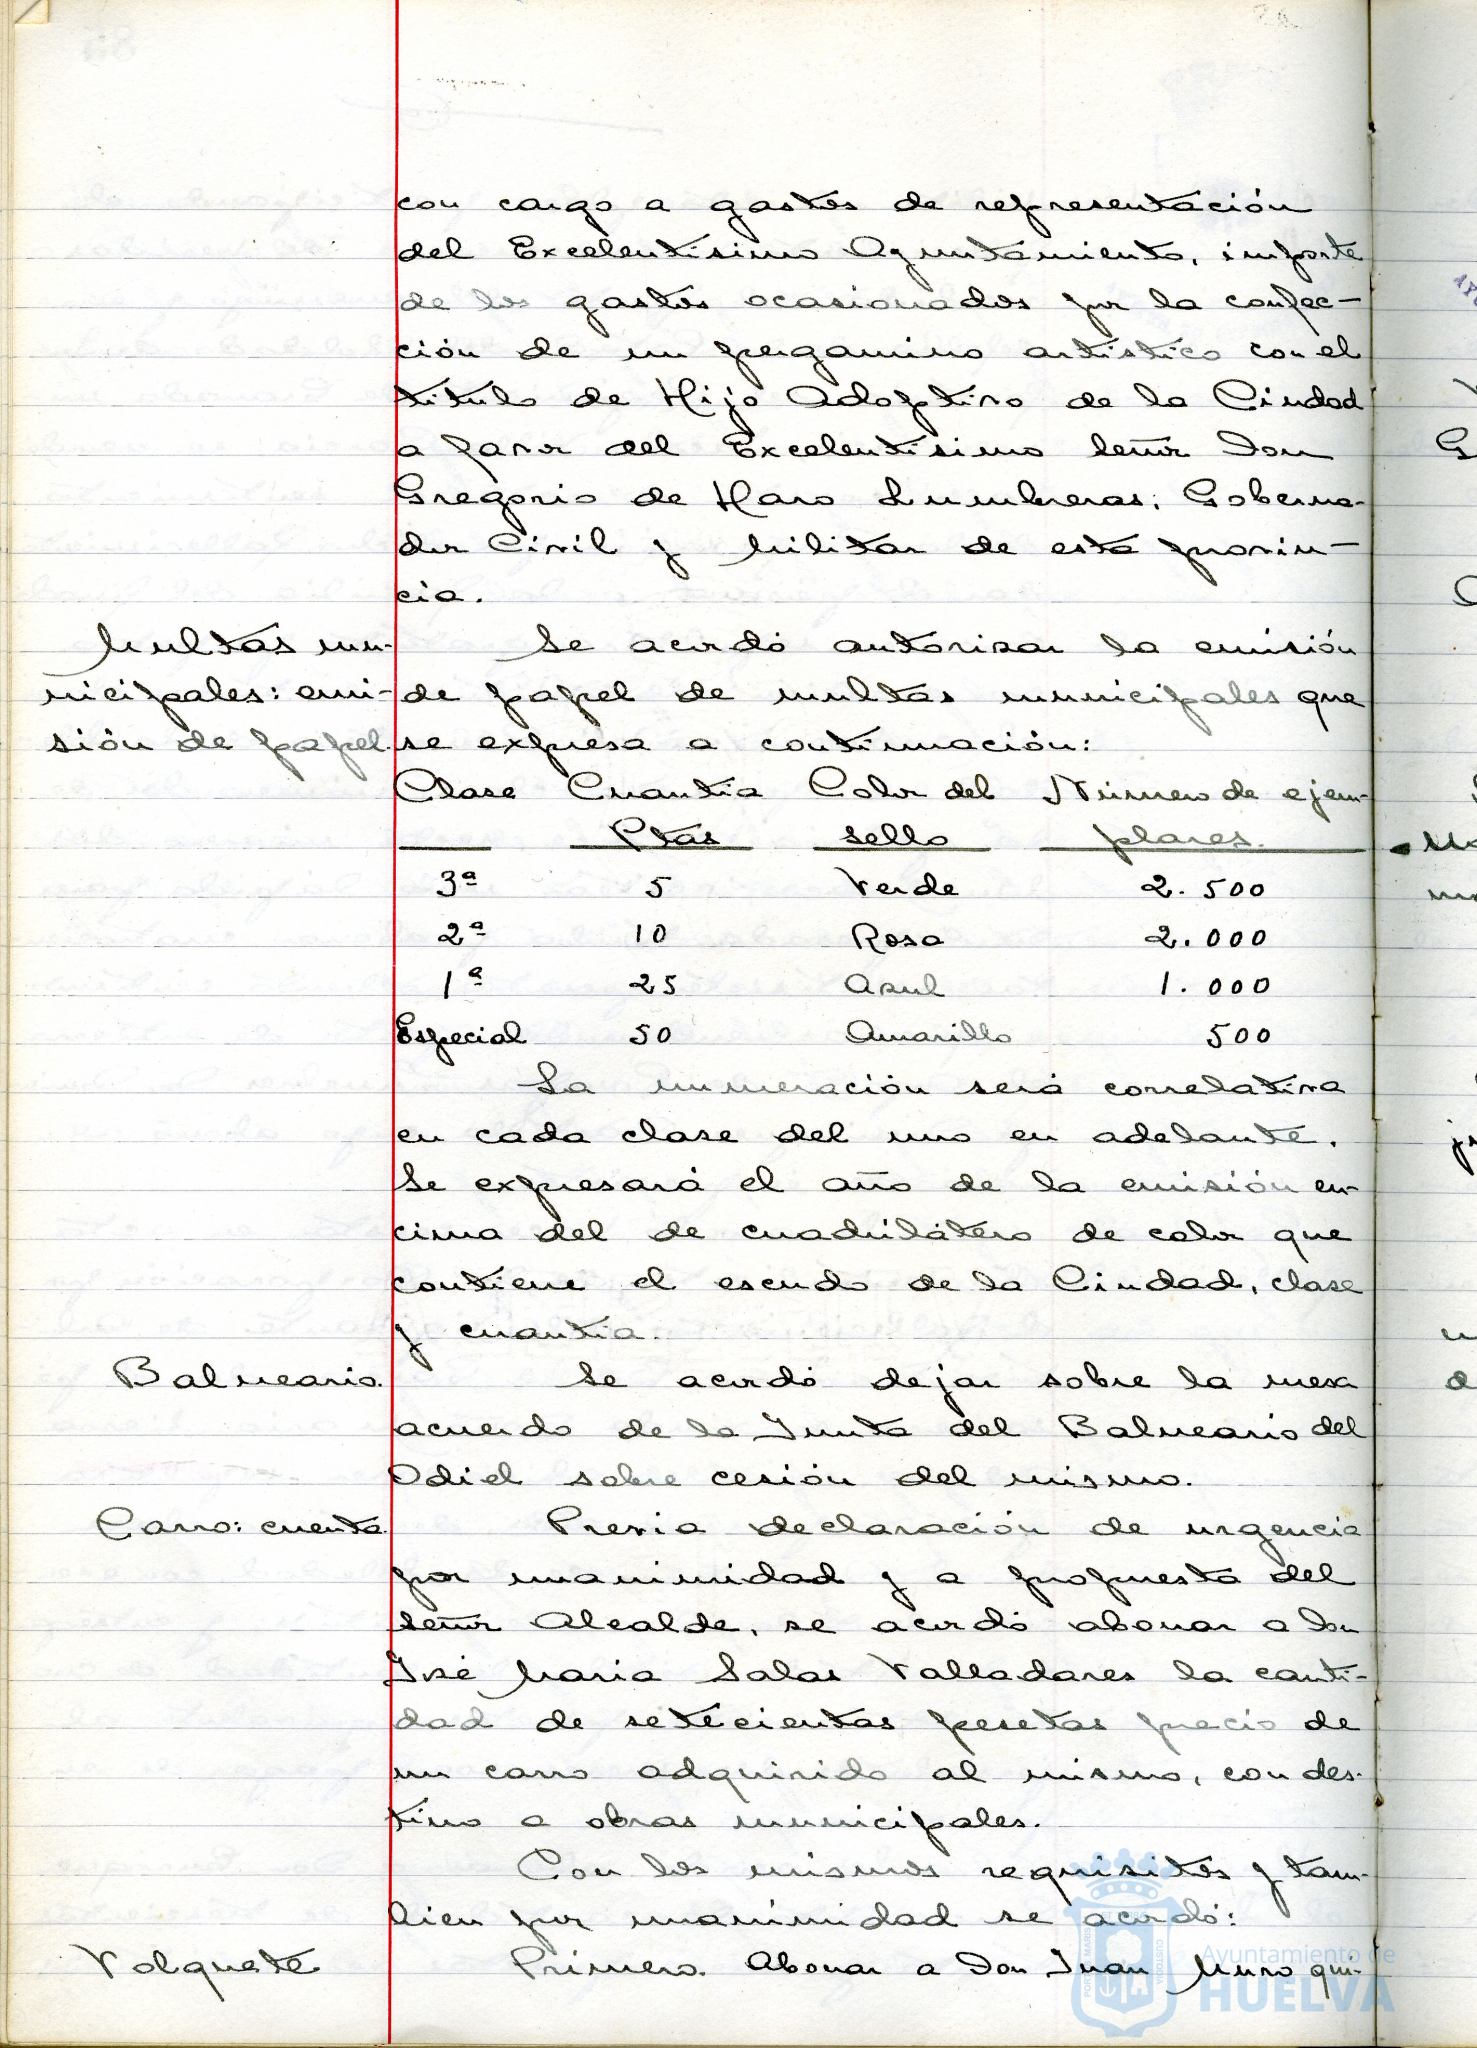 con cargo a gastos de representación
del Excelentísimo Ayuntamiento, importe
de los gastos ocasionados por la confec-
ción de un pergamino artístico con el
título de Hijo Adoptivo de la Ciudad
a favor del Excelentísimo Señor Don
Gregorio de Haro Lumbreras, Goberna-
dor Civil y Militar de esta provin-
cia.
Multas mu-
nicipales: emi-
sión de papel.
Se acordó autorizar la emisión
de papel de multas municipales que
se expresa a continuación:
Clase Cuantía Color del Número de ejem-
Ptas sello plares.
3ª 5 Verde 2.500
2ª 10 Rosa 2.000
1ª 25 Azul 1.000
Especial 50 Amarillo 500
La numeración será correlativa
en cada clase del uno en adelante.
Se expresará el año de la emisión en-
cima del de cuadrilátero de color que
contiene el escudo de la Ciudad, clase
y cuantía.
Balneario.
Se acordó dejar sobre la mesa
acuerdo de la Junta del Balneario del
Odiel sobre cesión del mismo.
Carro: cuenta.
Previa declaración de urgencia
por unanimidad y a propuesta del
Señor Alcalde, se acordó abonar a Don
José María Salas Valladares la canti-
dad de setecientas pesetas precio de
un carro adquirido al mismo, con des-
tino a obras municipales.
Con los mismos requisitos y tam-
bien por unanimidad se acordó:
Volquete
Primero. Abonar a Don Juan Muro qui-
Ayuntamiento de
HUELVA